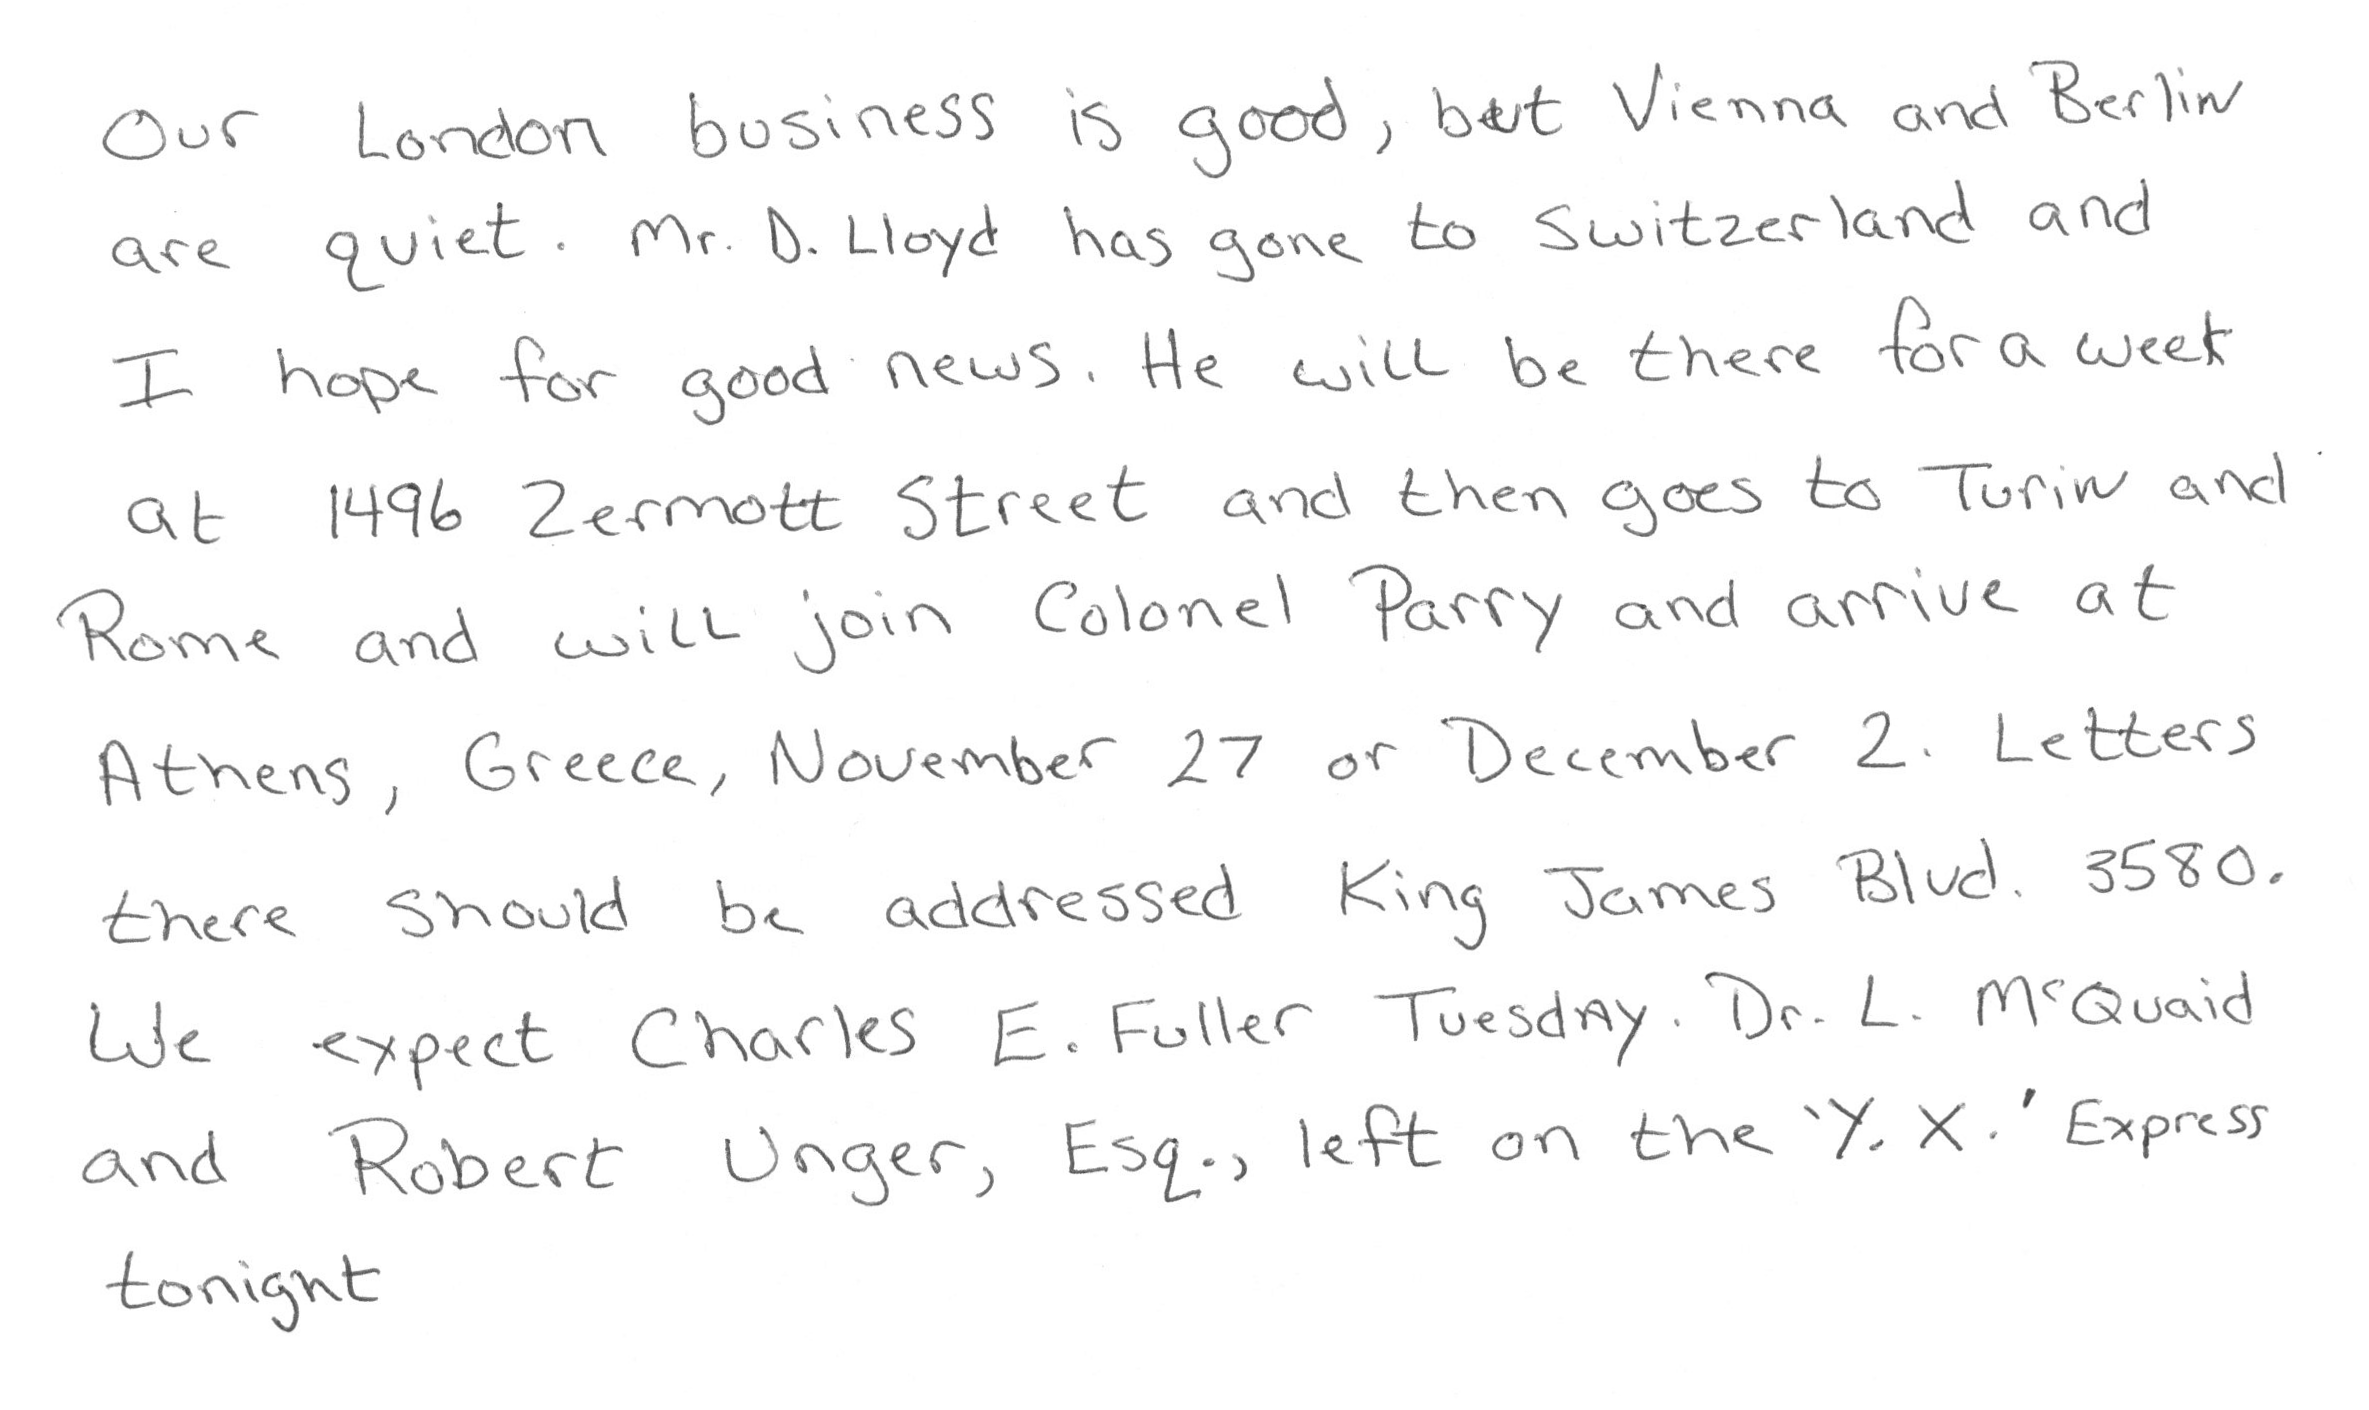 Our London business is good, but Vienna and Berlin
are quiet. Mr. D. Lloyd has gone to Switzerland and
I hope for good news. He will be there for a week
at 1496 Zermott Street and then goes to Turin and
Rome and will join Colonel Parry and arrive at
Athens, Greece, November 27 or December 2. Letters
there should be addressed King James Blvd. 3580.
We expect Charles E. Fuller Tuesday. Dr. L. McQuaid
and Robert Unger, Esq., left on the 'Y. X.' Express
tonight